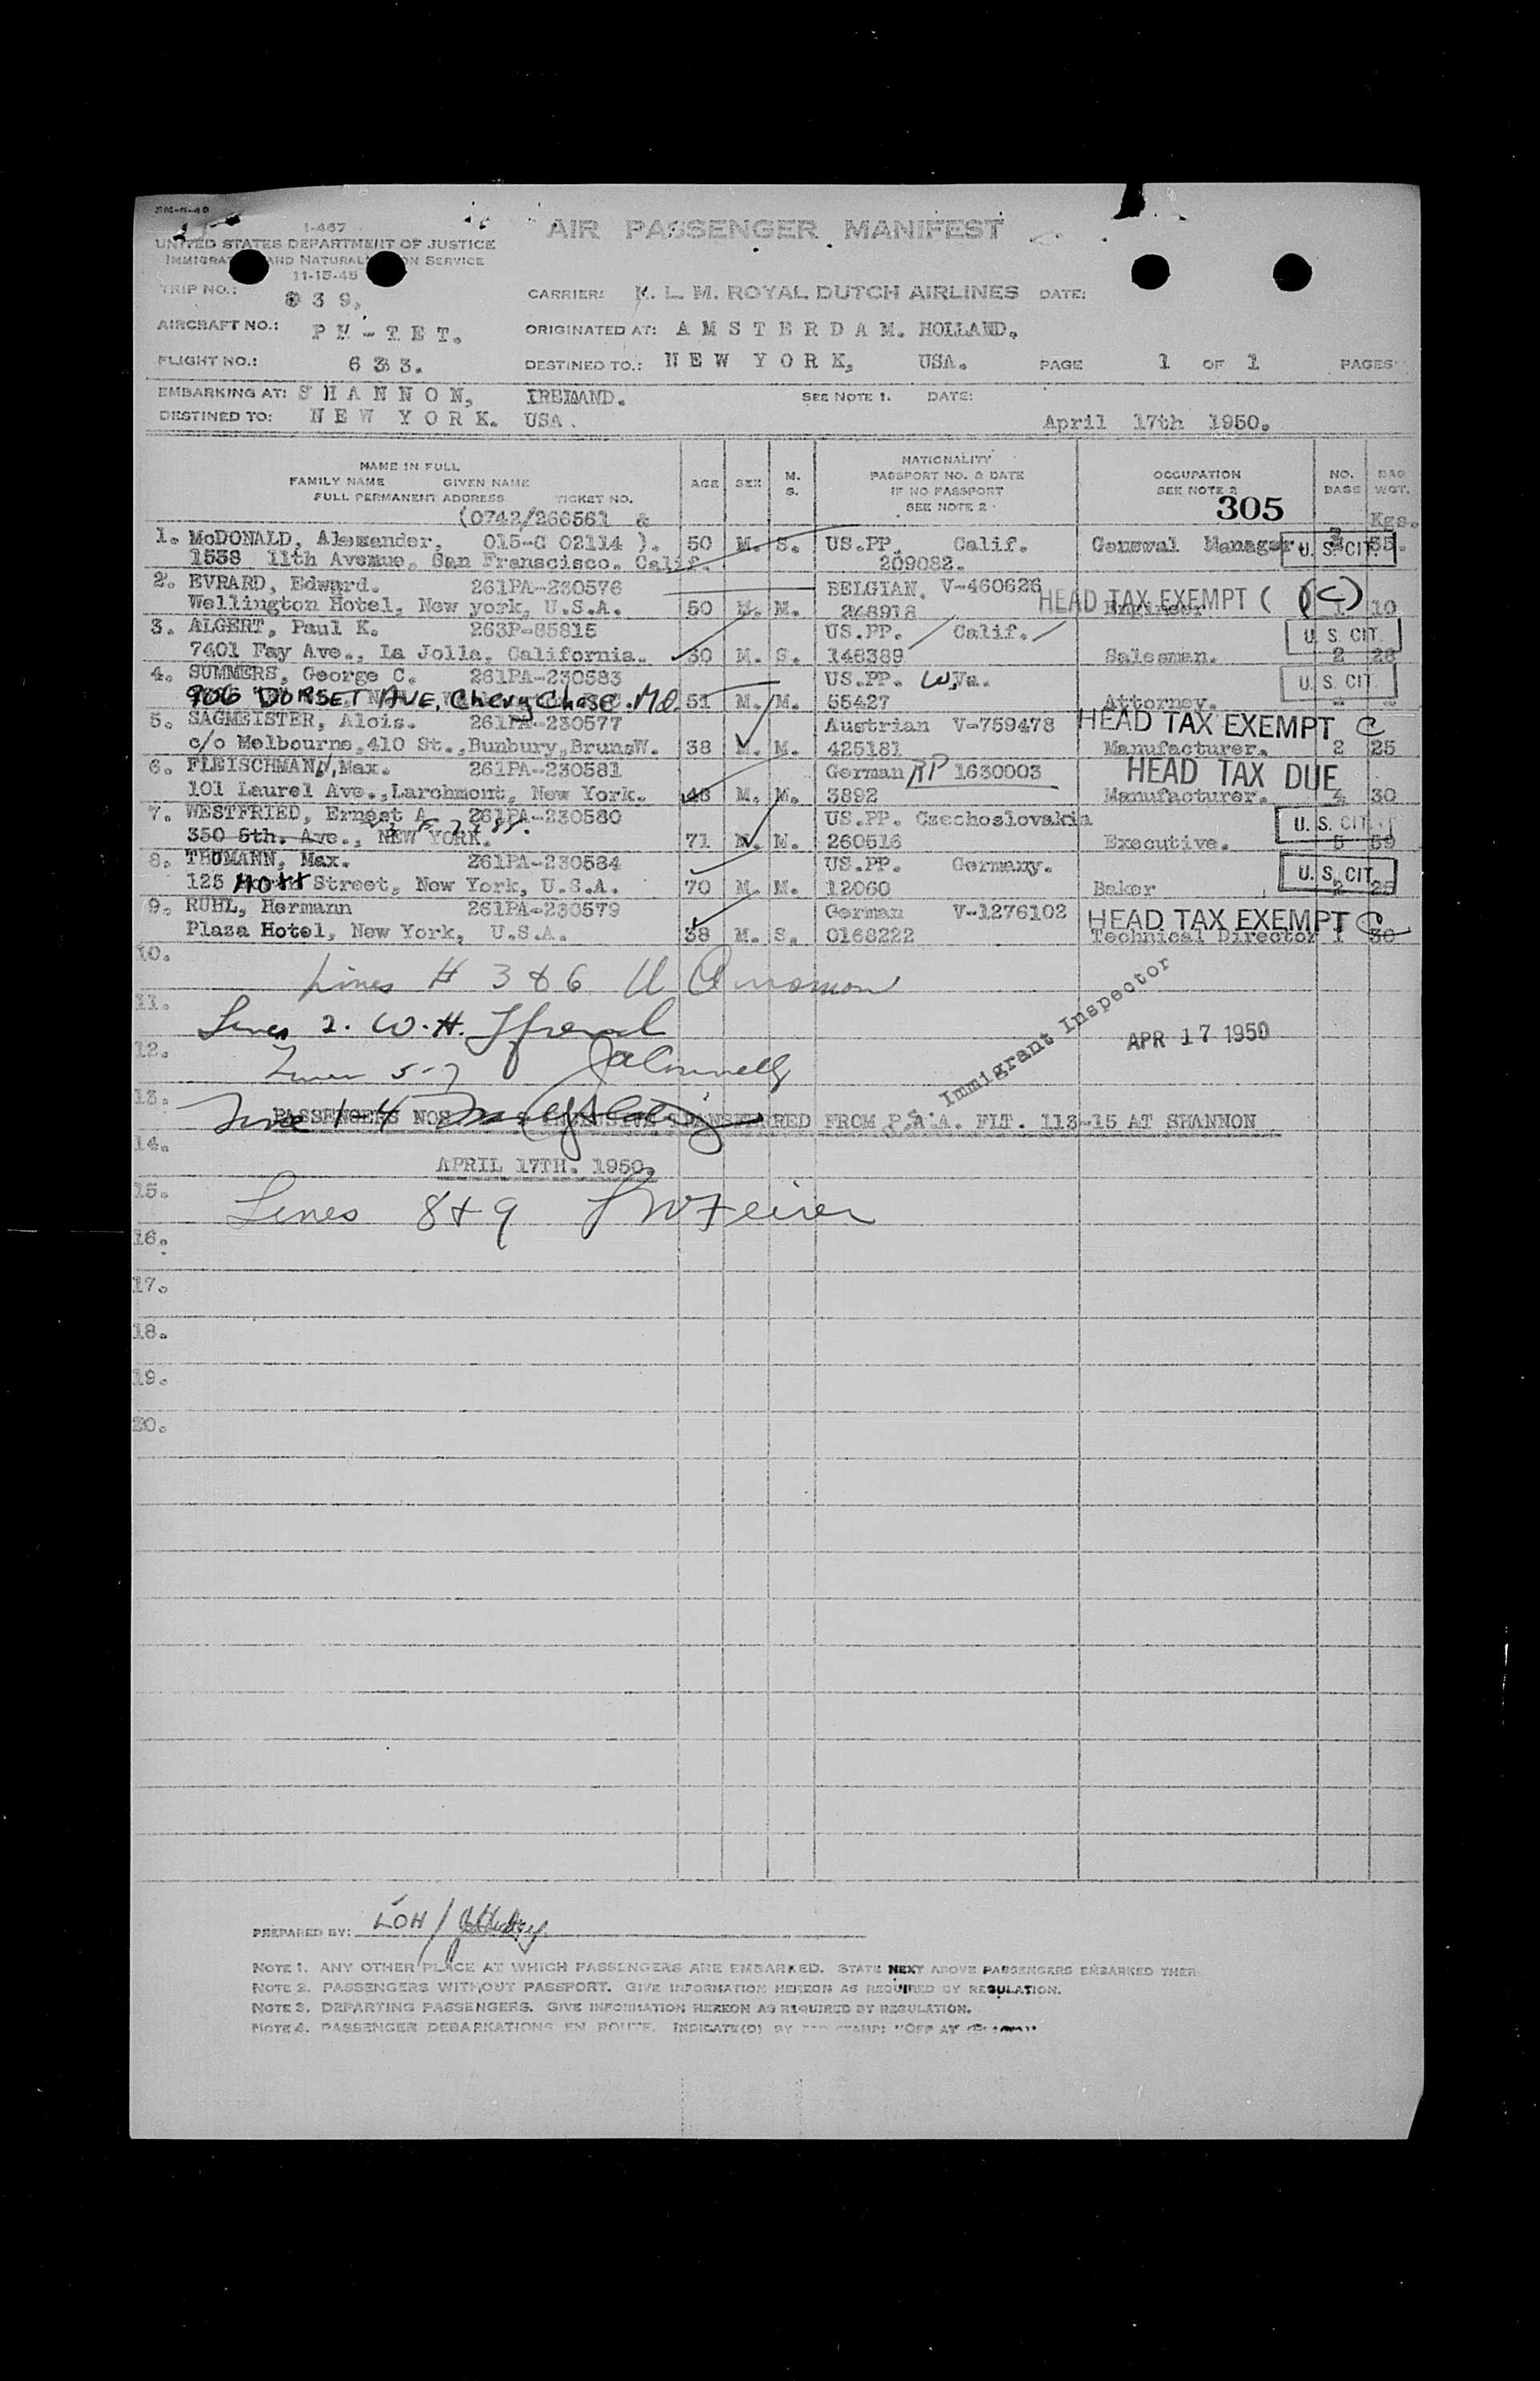 AIR PASSENGER MANIFEST
I-467
UNITED STATES DEPARTMENT OF JUSTICE
IMMIGRATION AND NATURALIZATION SERVICE
11-15-45
TRIP NO.: 39. CARRIER: K. L. M. ROYAL DUTCH AIRLINES DATE:
AIRCRAFT NO.: PH-TET. ORIGINATED AT: AMSTERDAM. HOLLAND.
FLIGHT NO.: 633. DESTINED TO.: NEW YORK, USA. PAGE 1 OF 1 PAGES
EMBARKING AT: SHANNON, IRELAND. SEE NOTE 1. DATE:
DESTINED TO: NEW YORK. USA. April 17th 1950.
NAME IN FULL
FAMILY NAME GIVEN NAME
FULL PERMANENT ADDRESS TICKET NO.
AGE SEX M. S.
NATIONALITY
PASSPORT NO. & DATE
IF NO PASSPORT
SEE NOTE 2
OCCUPATION
SEE NOTE 2
NO. BAGS BAG WGT.
305
(0742/266561 & Kgs.
1. McDONALD, Alexander, 015-C 02114 ). 50 M. S. US.PP. Calif. General Manager 35. U. S. CIT.
1538 11th Avenue, San Franscisco. Calif. 209082.
2. EVRARD, Edward. 261PA-230576 BELGIAN. V-460626 HEAD TAX EXEMPT (C)
Wellington Hotel, New york, U.S.A. 50 M. M. 248918 Engineer 1 10
3. ALGERT, Paul K. 263P-85815 US.PP. Calif. U. S. CIT.
7401 Fay Ave., La Jolla, California. 30 M. S. 148389 Salesman. 2 28
4. SUMMERS, George C. 261PA-230583 US.PP. W.Va. U. S. CIT.
906 DORSET AVE. Chevy Chase. MD. 51 M. M. 55427 Attorney.
5. SAGMEISTER, Alois. 261PA-230577 Austrian V-759478 HEAD TAX EXEMPT C
c/o Melbourne, 410 St., Bunbury, BrunsW. 38 M. M. 425181 Manufacturer. 2 25
6. FLEISCHMANN, Max. 261PA-230581 German RP 1630003 HEAD TAX DUE
101 Laurel Ave., Larchmont, New York. 48 M. M. 3892 Manufacturer. 4 30
7. WESTFRIED, Ernest A. 261PA-230580 US.PP. Czechoslovakia U. S. CIT.
350 5th. Ave., NEW YORK. 71 M. M. 260516 Executive. 5 59
8. THUMANN, Max. 261PA-230584 US.PP. Germany. U. S. CIT.
125 Mott Street, New York, U.S.A. 70 M. M. 12060 Baker 2 25
9. RUHL, Hermann 261PA-230579 German V-1276102 HEAD TAX EXEMPT C
Plaza Hotel, New York, U.S.A. 38 M. S. 0168222 Technical Director 1 30
10.
Lines # 3 & 6
11.
Lines 2. W.H.
Immigrant Inspector
APR 17 1950
12.
Lines 5-7
13.
Lines 1-4
PASSENGERS NOS INCLUSIVE TRANSFERRED FROM P.A.A. FLT. 113-15 AT SHANNON
14.
APRIL 17TH. 1950.
15.
Lines 8 & 9
16.
17.
18.
19.
20.
PREPARED BY: LOH /
NOTE 1. ANY OTHER PLACE AT WHICH PASSENGERS ARE EMBARKED. STATE NEXT ABOVE PASSENGERS EMBARKED THER
NOTE 2. PASSENGERS WITHOUT PASSPORT. GIVE INFORMATION HEREON AS REQUIRED BY REGULATION.
NOTE 3. DEPARTING PASSENGERS. GIVE INFORMATION HEREON AS REQUIRED BY REGULATION.
NOTE 4. PASSENGER DEBARKATIONS EN ROUTE. INDICATE(D) BY STAMP: "OFF AT